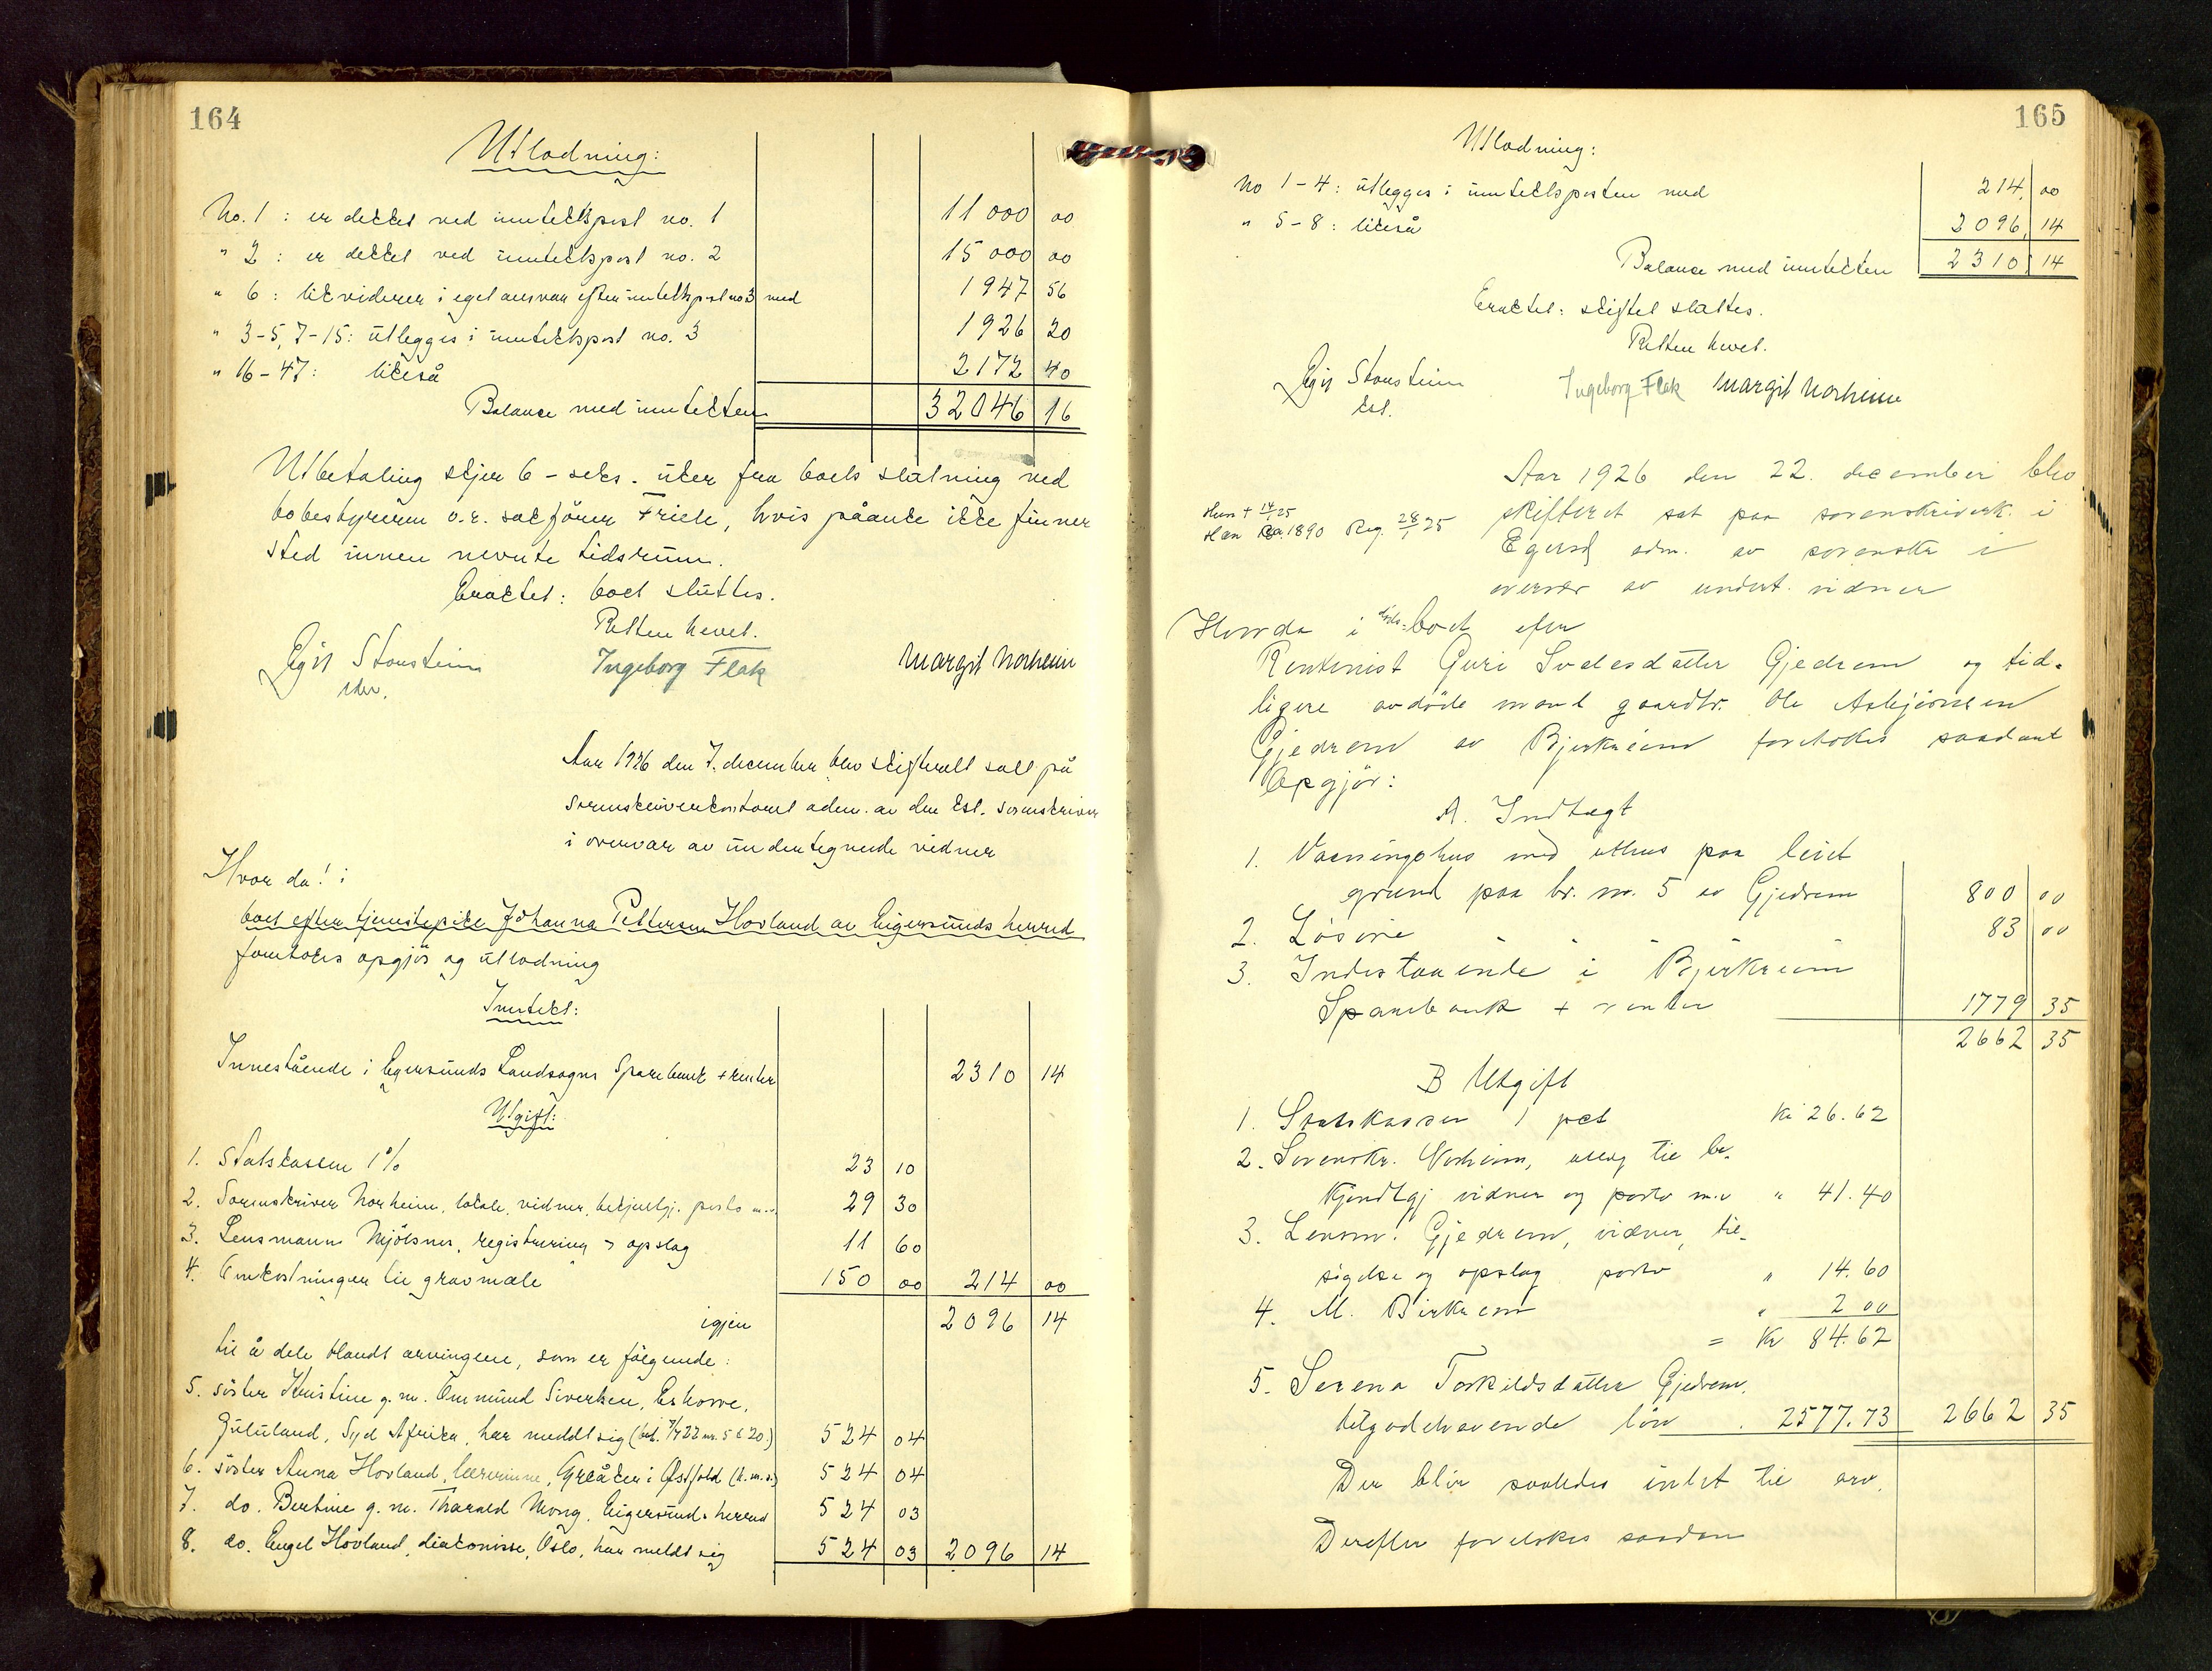 164
Utlodning:
No. 1 : er dekket ved inntektspost no. 1 11 000 00
" 2 : er dekket ved inntektspost no. 2 15 000 00
" 6 : likviderer i eget ansvar efter inntektspost no 3 med 1947 56
" 3-5, 7-15: utlegges i inntektspost no. 3 1926 20
" 16-47: likeså 2172 40
Balanse med inntekten 32046 16
Utbetaling skjer 6 - seks - uker fra boets slutning ved
bobestyreren o.r. sakfører Friele, hvis påanke ikke finner
sted innen nevnte tidsrum.
Eraktet: boet sluttes.
Retten hevet.
Ingeborg Flak Margit Norheim
Aar 1926 den 7. december blev skifterett satt på
sorenskriverkontoret adm. av den kst. sorenskriver
i overvær av undertegnede vidner
Hvorda! i
boet efter tjenstepike Johanna Pettersen Hovland av Eigersunds herred
foretokes opgjør og utlodning
Inntekt:
Innestående i Egersunds Landsogns Sparebank + renter 2310 14
Utgift:
1. Statskassen 1% 23 10
2. Sorenskriver Norheim, lokale, vidner, bekjentgj. porto m.v. 29 30
3. Lensmann Mjølsnes, registrering & opslag 11 60
4. Omkostninger til gravmæle 150 00 214 00
igjen 2096 14
til å dele blandt arvingene, som er følgende:
5. søster Kristine g.m. Ommund Sivertsen, Eshowe,
Zululand, Syd Afrika, har meldt sig 524 04
6. søster Anna Hovland, lærerinne, Greåker i Østfold (h.m.s.) 524 04
7. do. Bertine g.m. Tharald Mong, Eigersunds herred 524 03
8. do. Engel Hovland, diakonisse, Oslo, har meldt sig 524 03 2096 14
165
Utlodning:
No 1-4: utlegges i inntektsposten med 214 00
" 5-8: likeså 2096 14
Balanse med inntekten 2310 14
Eraktet: skiftet sluttes.
Retten hevet.
kst. Ingeborg Flak Margit Norheim
Aar 1926 den 22. december blev
skifteret sat paa sorenskriverk. i
Egersd adm. av sorenskr i
overvær av undert. vidner
Hun + 14/1 25
Han ca. 1890 Reg. 28/1 25
Hvorda i døds-boet efter
Rentenist Guri Sveresdatter Gjedrem og tid-
ligere avdøde mand gaardbr. Ole Asbjørnsen
Gjedrem av Bjerkreim foretokes saadant
Opgjør:
A. Indtægt
1. Vaaningshus med uthus paa leiet
grund paa br. nr. 5 av Gjedrem 800 00
2. Løsøre " " " 83 00
3. Indestaaende i Bjerkreim
Sparebank + renter 1779 35
2662 35
B Utgift
1. Statskassen 1 pct Kr 26.62
2. Sorenskr. Norheim, utlæg til be-
kjendtgj vidner og porto m.v " 41.40
3. Lensm. Gjedrem, vidner, til-
sigelse og opslag porto " 14.60
4. M. Birkrem " 2 00
= Kr 84.62
5. Serena Torkildsdatter Gjedrem,
tilgodehavende løn . 2577.73 2662 35
Der blir saaledes intet til arv.
Derefter foretokes saadan